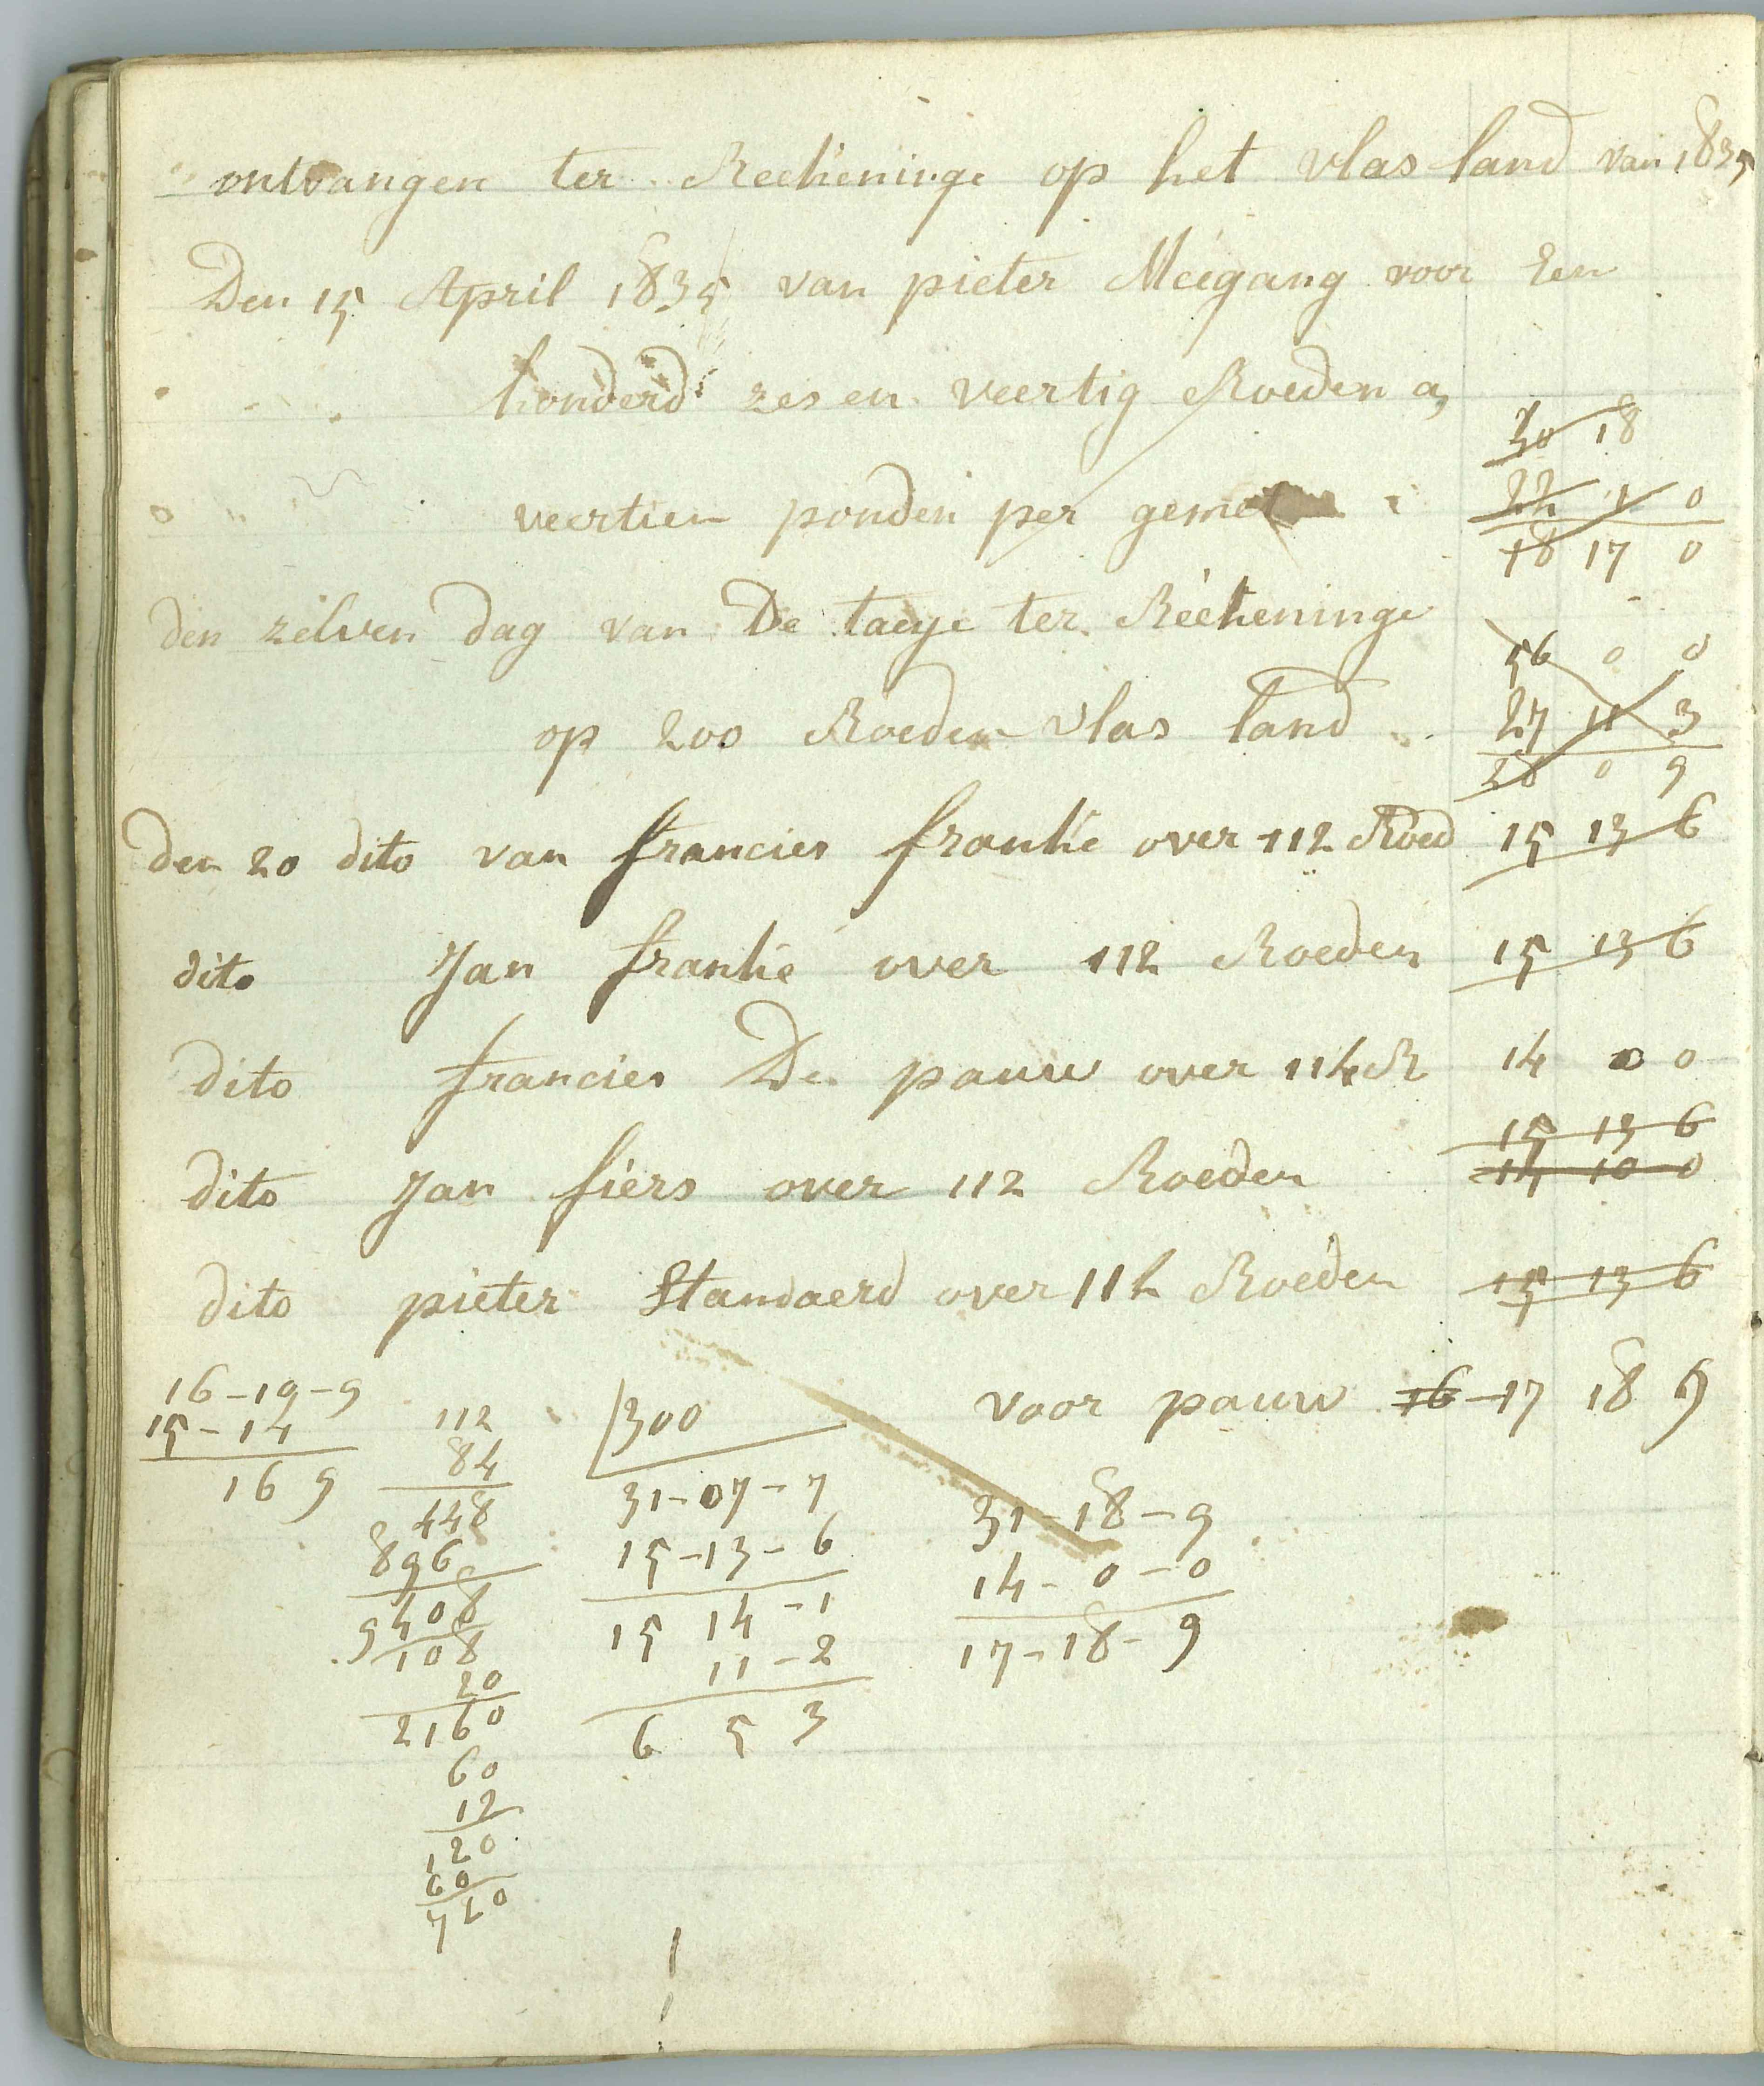 ontvangen ter Reekeninge op het vlas land van 1835
Den 15 April 1835 van pieter Meegang voor Een
honderd zes en veertig Roeden a
30 18
veertien ponden per gemet
22 1 0
18 17 0
den zelven dag van De taeye ter Reekeninge
56 0 0
op 200 Roeden vlas land
27 11 3
28 0 9
den 20 dito van francies franke over 112 Roed 15 13 6
dito Jan franke over 112 Roeden 15 13 6
dito francies De pauw over 114 R 14 0 0
15 13 6
dito Jan fiers over 112 Roeden 14 10 0
dito pieter Standaerd over 112 Roeden 15 13 6
voor pauw 16-17 18 9
16-19-9
15-14
16 9
112
84
448
896
9408
108
20
2160
60
12
120
60
720
300
31-07-7
15-13-6
15 14-1
11-2
6 5 3
31-18-9
14-0-0
17-18-9